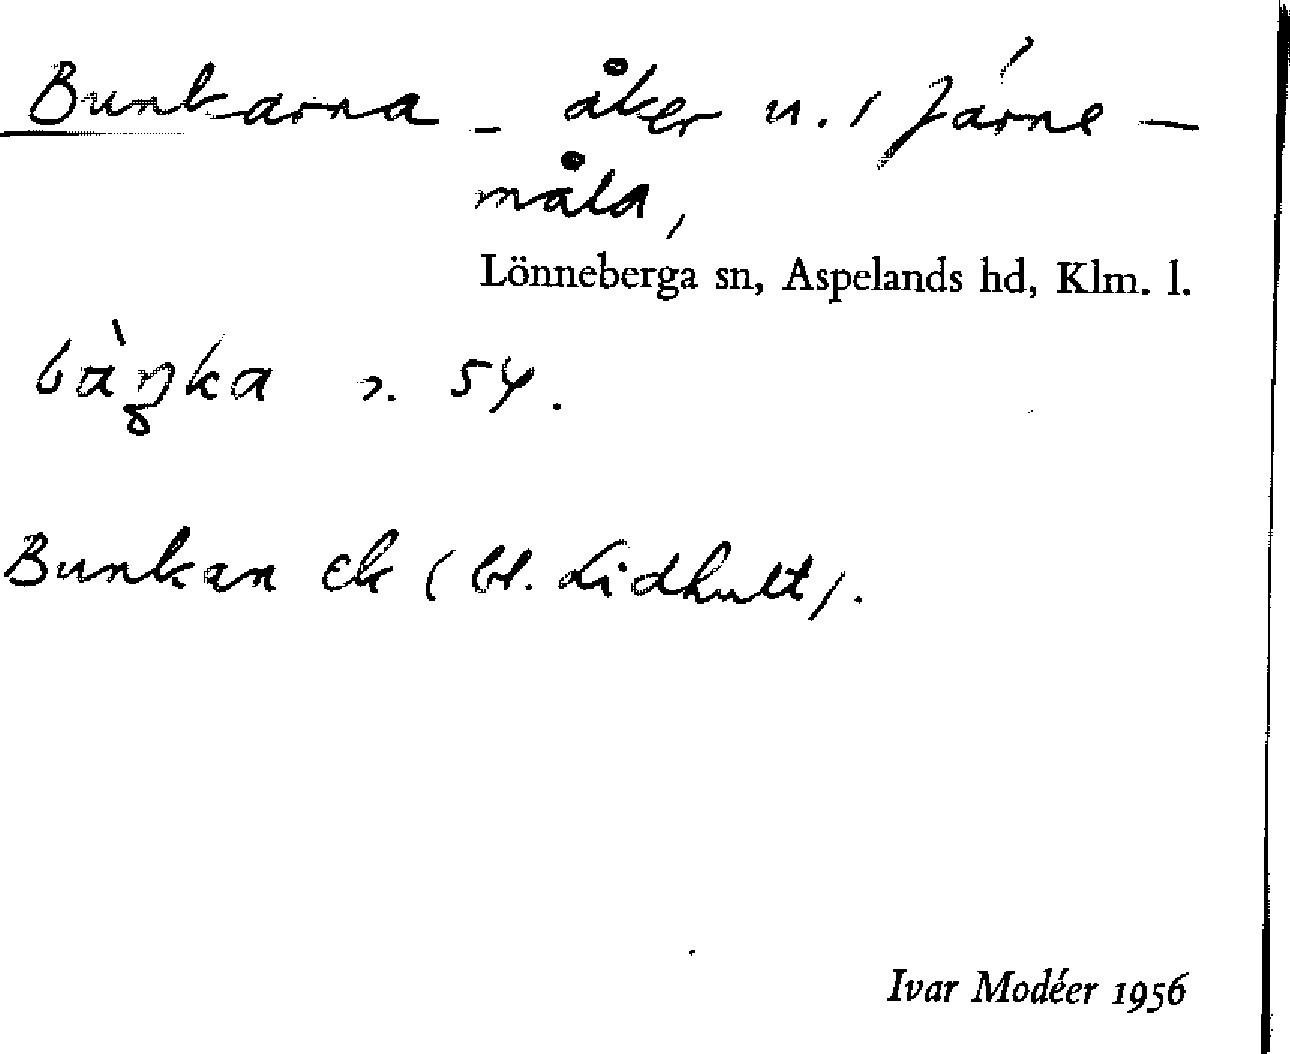 Bunkarna – åker u. / Järne –
måla,
Lönneberga sn, Aspelands hd, Klm. l.
bàŋka s. 54.
Bunkan ek (bl. Lidhult).
Ivar Modéer 1956